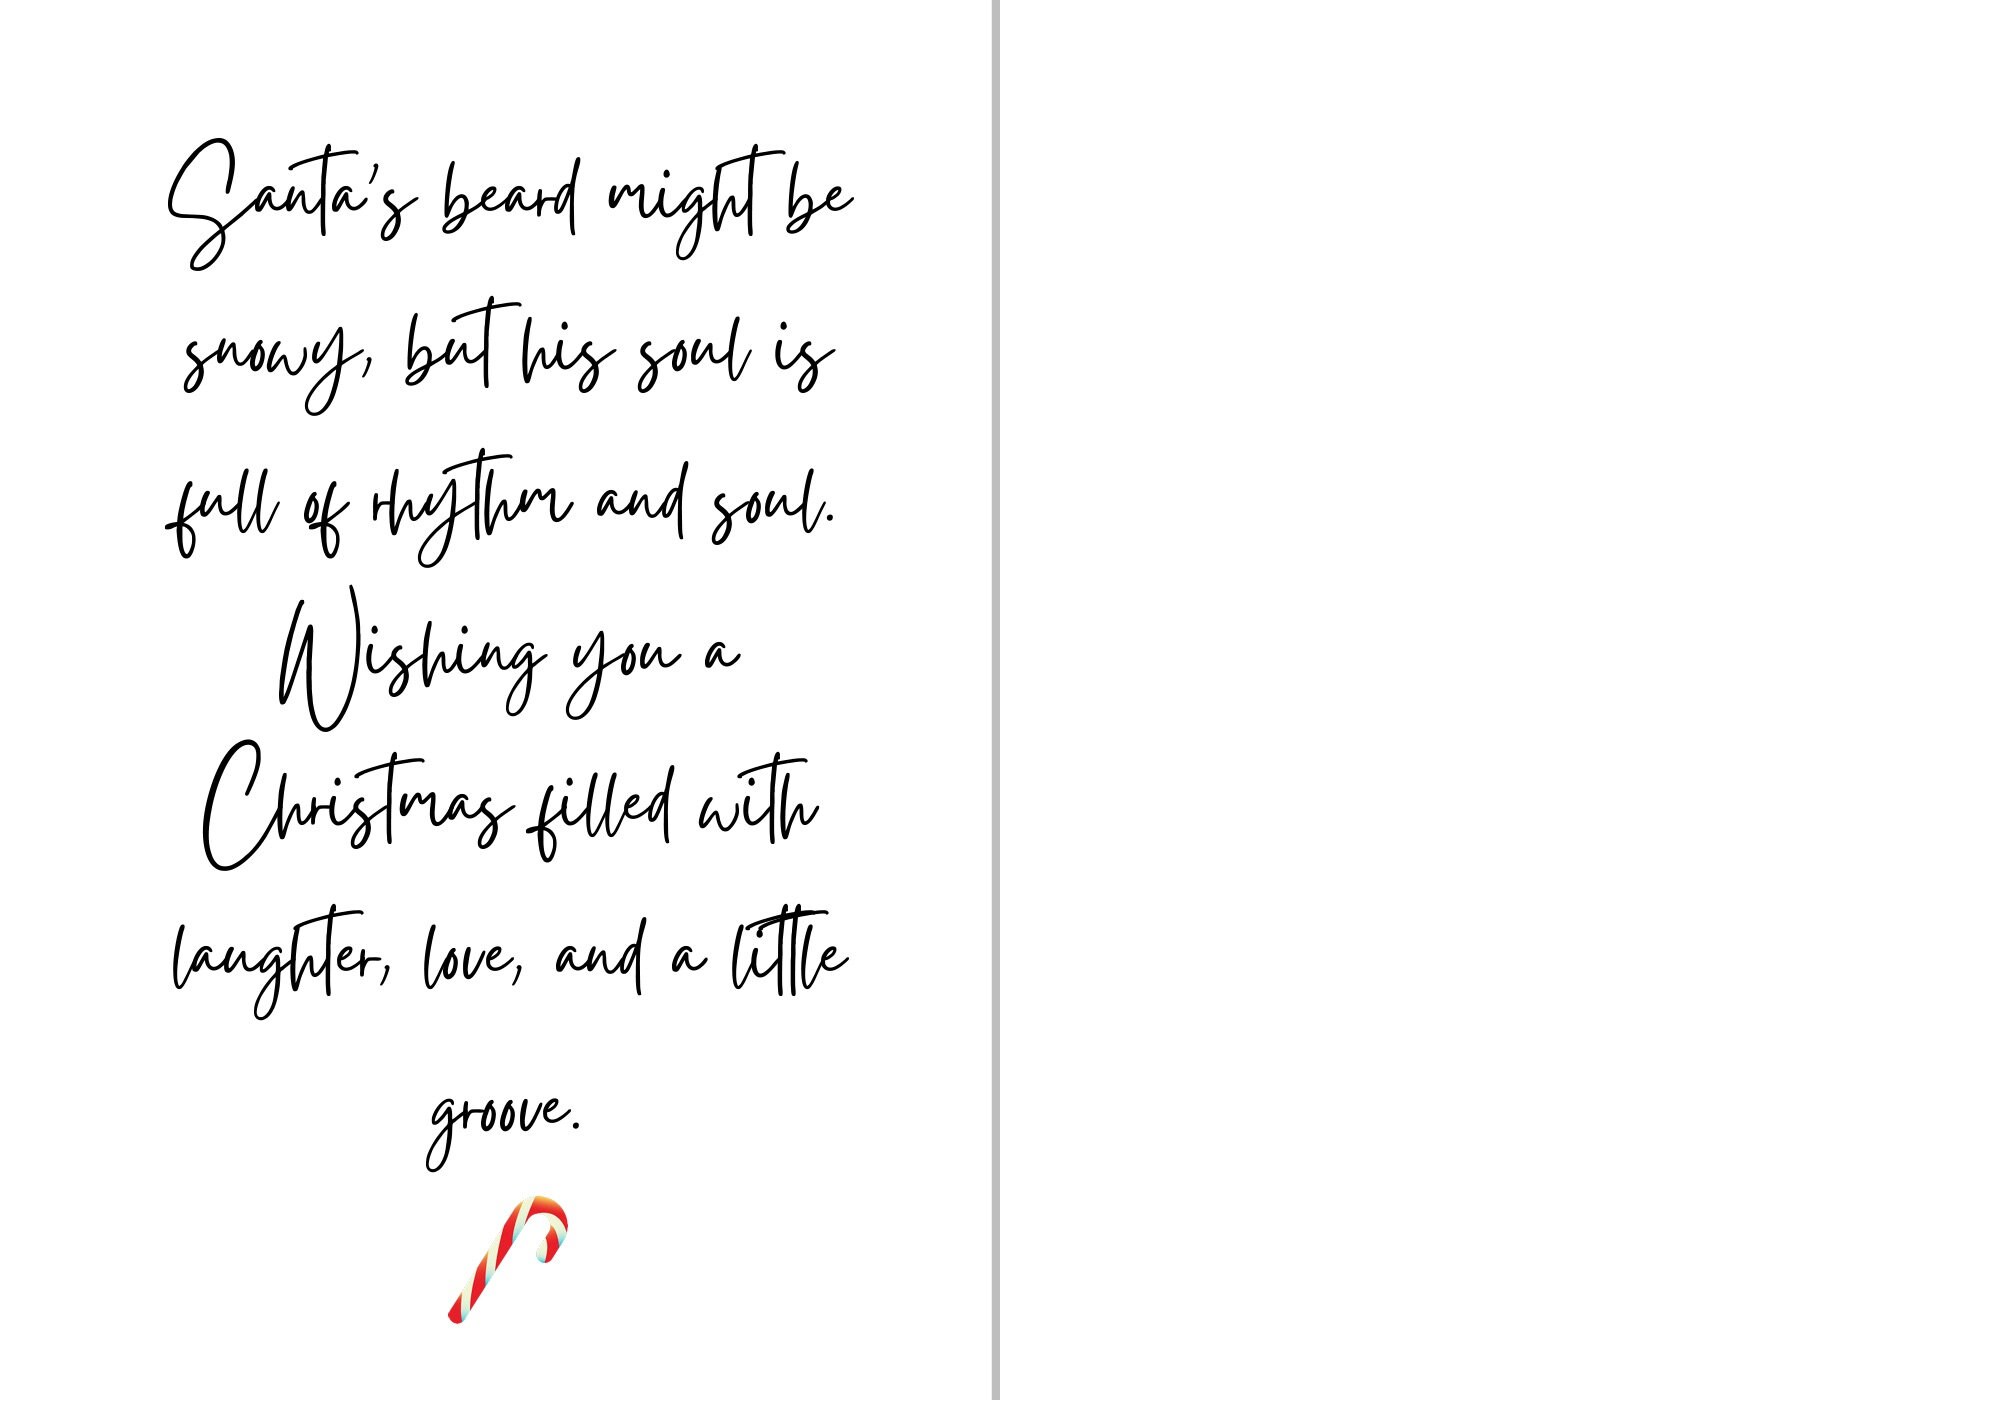 Santa's beard might be
snowy, but his soul is
full of rhythm and soul.
Wishing you a
Christmas filled with
laughter, love, and a little
groove.